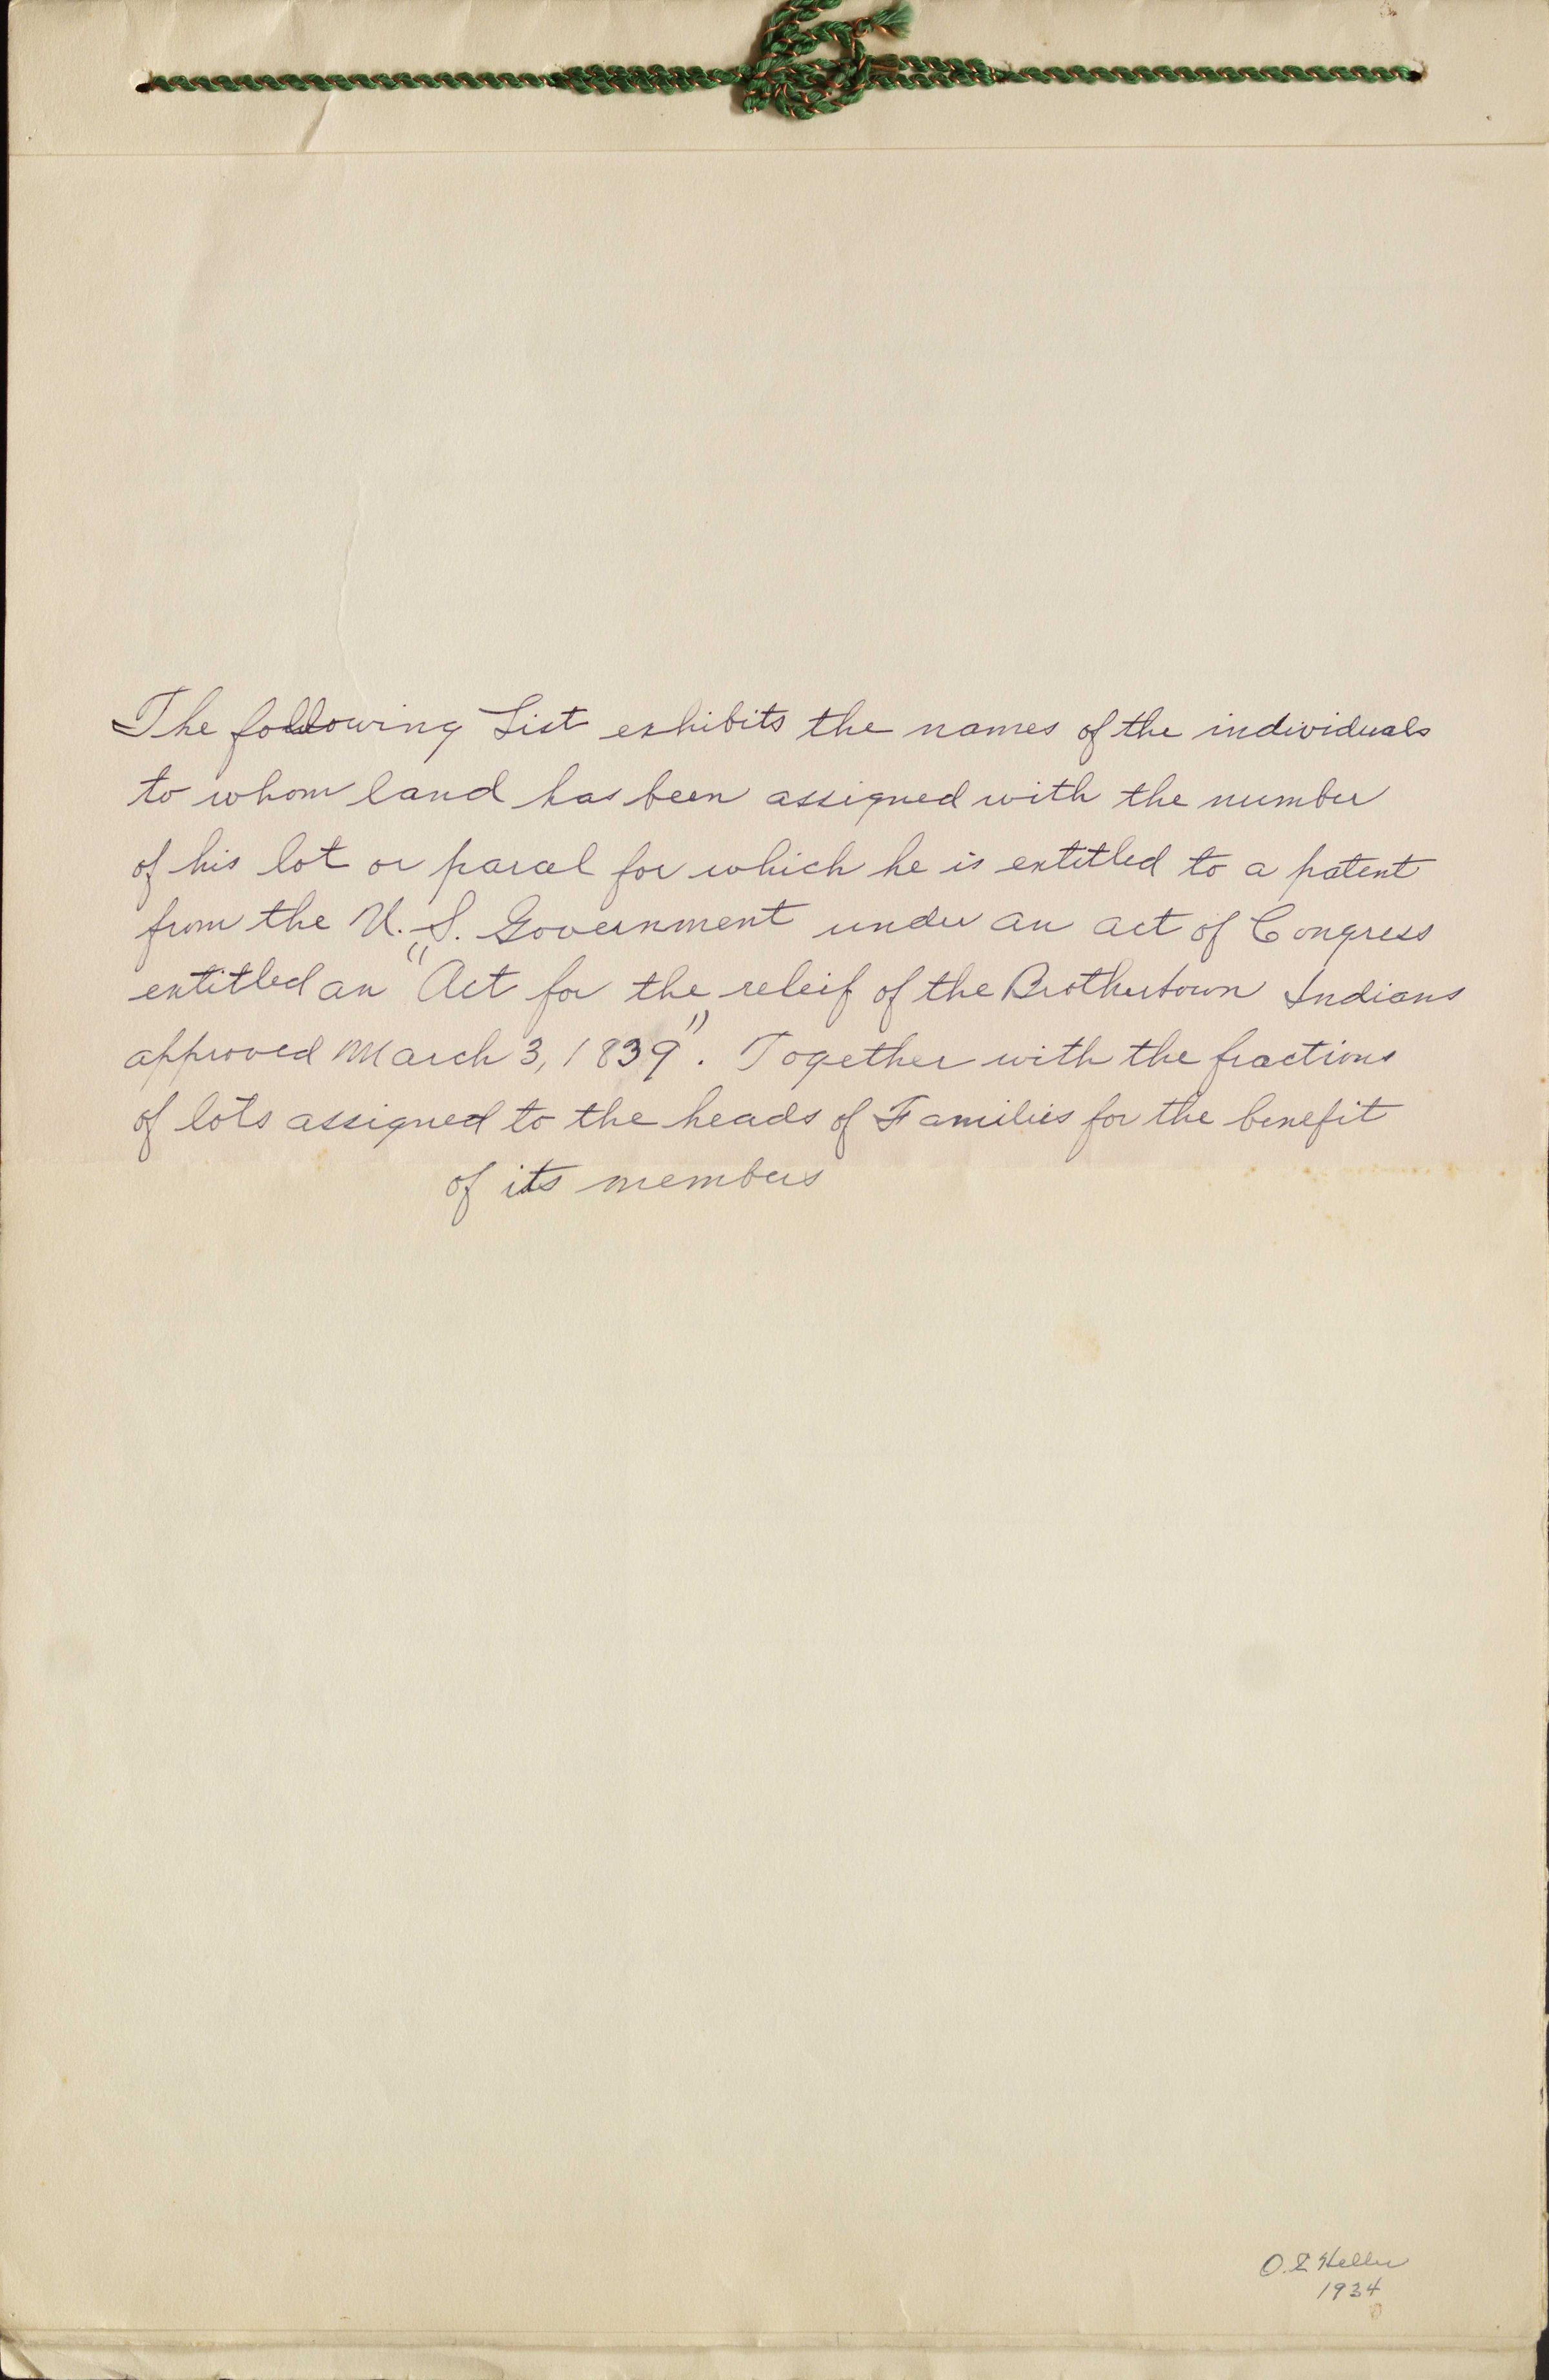 The following List exhibits the names of the individuals
to whom land has been assigned with the number
of his lot or parcel for which he is entitled to a patent
from the U. S. Government under an act of Congress
entitled an "Act for the releif of the Brothertown Indians
approved March 3, 1839". Together with the fractions
of lots assigned to the heads of Families for the benefit
of its members
O. Z Heller
1934